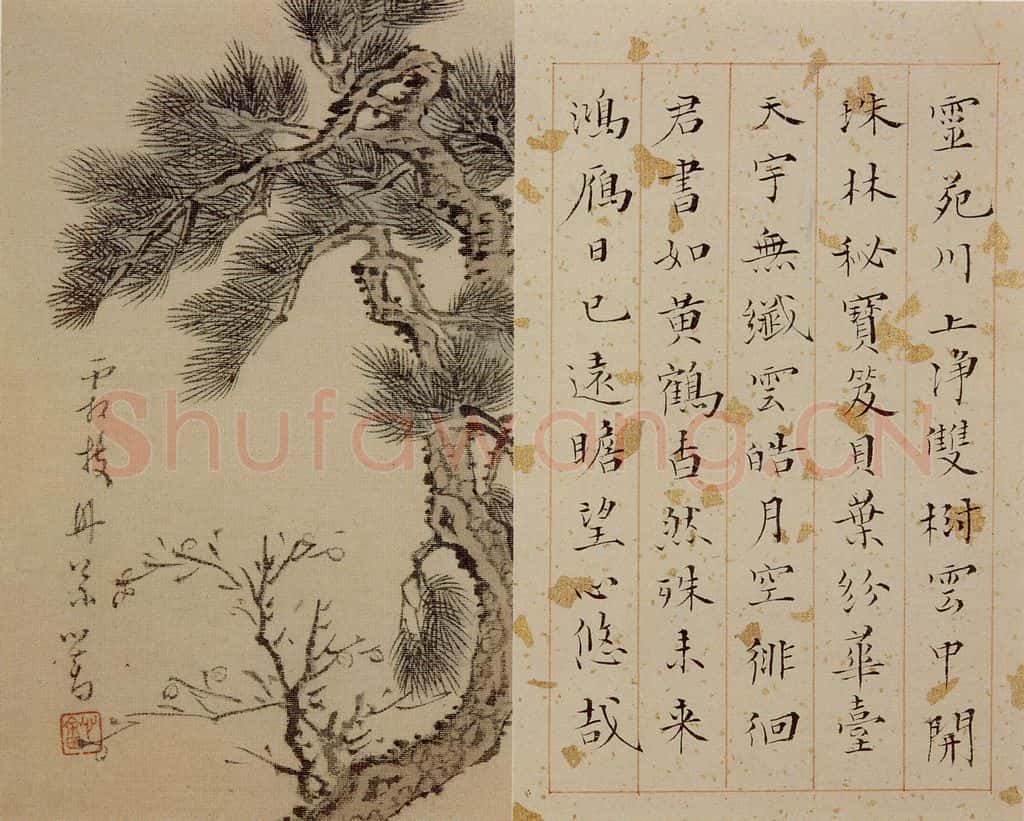 靈苑川上淨雙樹雲中開
珠林秘寶笈貝葉紛華臺
天宇無纖雲皓月空徘徊
君書如黄鶴杳然殊未来
鴻鴈日已遠瞻望心悠哉
霜枝丹
心畬
Shufawang.CN